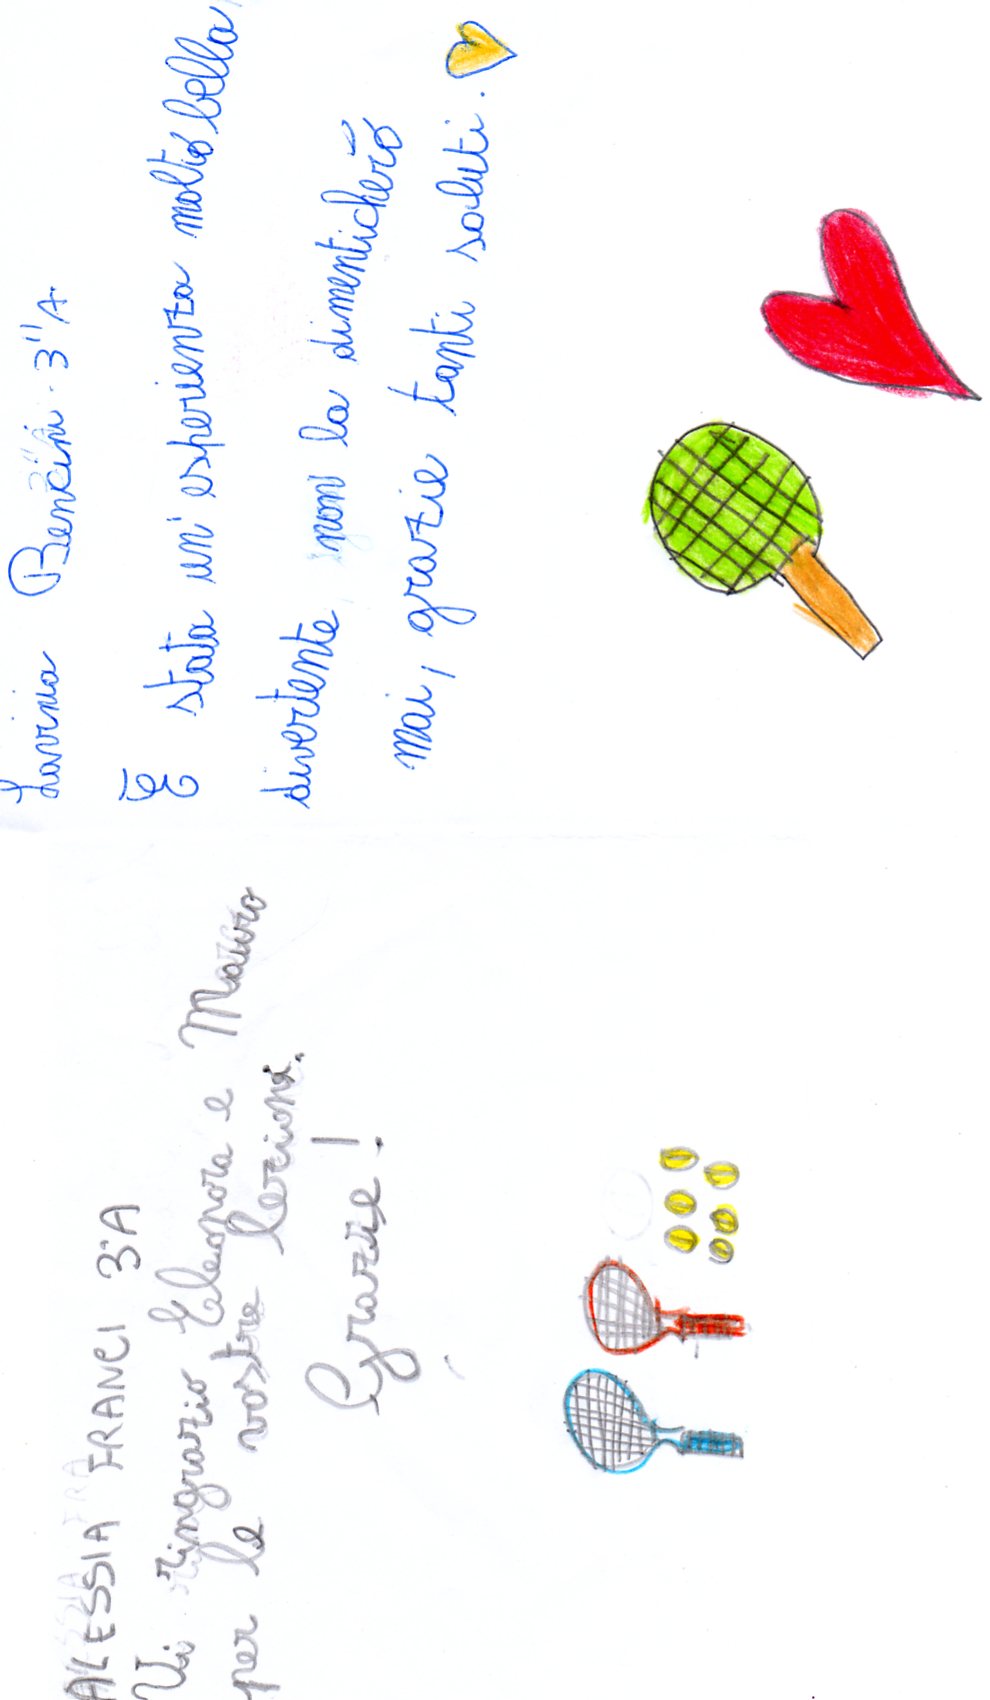 Lavinia Bencini 3"A.
È stata un'esperienza molto bella,
divertente, non la dimenticherò
mai, grazie tanti saluti.
ALESSIA FRANCI 3°A
Vi ringrazio Eleonora e Mauro
per le vostre lezioni.
Grazie!